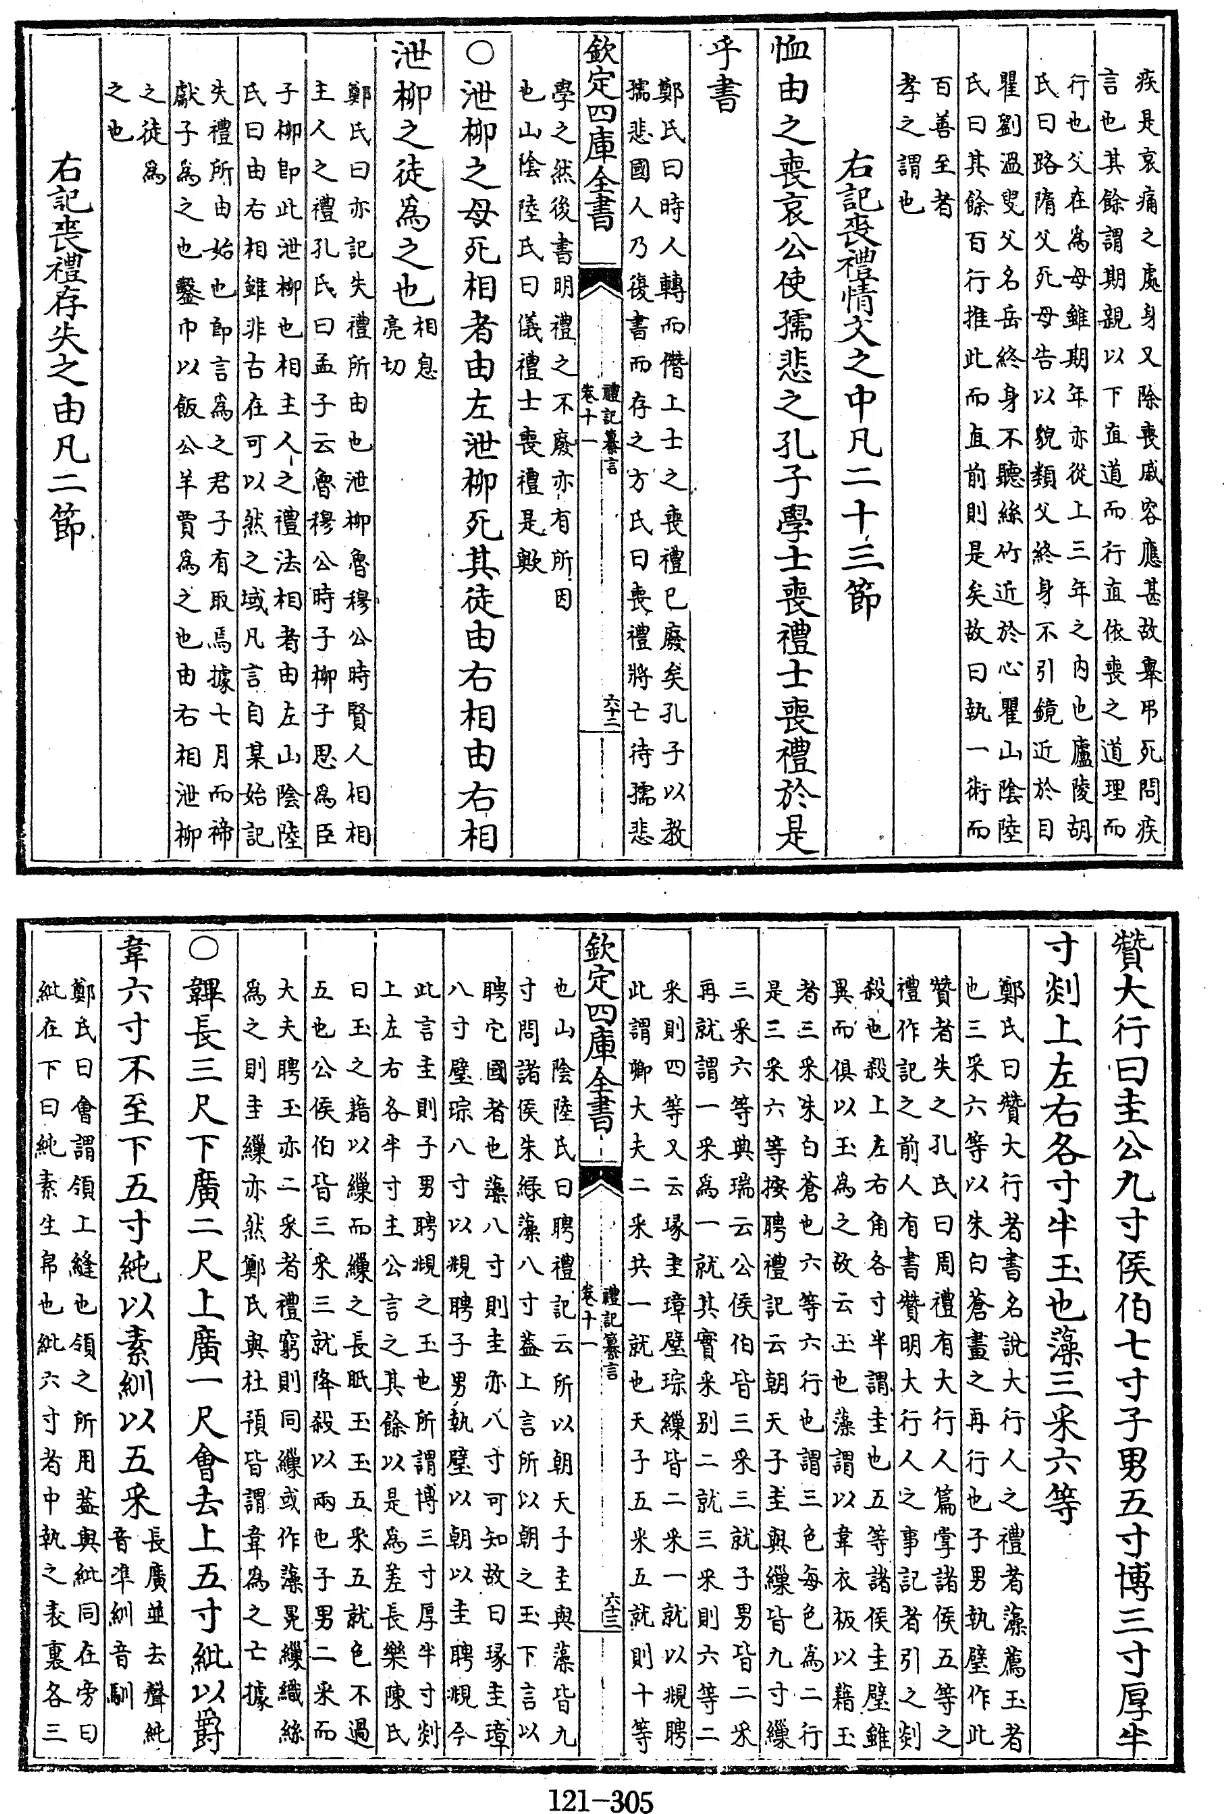 疾是哀痛之處身又除喪戚容應甚故舉弔死問疾
言也其餘謂期親以下直道而行直依喪之道理而
行也父在為母雖期年亦從上三年之內也廬陵胡
氏曰路隋父死母告以貌類父終身不引鏡近於目
瞿劉溫叟父名岳終身不聽絲竹近於心瞿山陰陸
氏曰其餘百行推此而直前則是矣故曰執一術而
百善至者
孝之謂也
右記喪禮情文之中凡二十三節
恤由之喪哀公使孺悲之孔子學士喪禮士喪禮於是
乎書
鄭氏曰時人轉而僭上士之喪禮已廢矣孔子以教
孺悲國人乃復書而存之方氏曰喪禮將亡待孺悲
欽定四庫全書
禮記纂言
卷十一
六十二
學之然後書明禮之不廢亦有所因
也山陰陸氏曰儀禮士喪禮是歟
○泄柳之母死相者由左泄柳死其徒由右相由右相
泄柳之徒為之也相息
亮切
鄭氏曰亦記失禮所由也泄柳魯穆公時賢人相相
主人之禮孔氏曰孟子云魯穆公時子柳子思為臣
子柳即此泄柳也相主人之禮法相者由左山陰陸
氏曰由右相雖非古在可以然之域凡言自某始記
失禮所由始也即言為之君子有取焉據七月而禘
獻子為之也鑿巾以飯公羊賈為之也由右相泄柳
之徒為
之也
右記喪禮存失之由凡二節
贊大行曰圭公九寸侯伯七寸子男五寸博三寸厚半
寸剡上左右各寸半玉也藻三采六等
鄭氏曰贊大行者書名說大行人之禮者藻薦玉者
也三采六等以朱白蒼畫之再行也子男執璧作此
贊者失之孔氏曰周禮有大行人篇掌諸侯五等之
禮作記之前人有書贊明大行人之事記者引之剡
殺也殺上左右角各寸半謂圭也五等諸侯圭璧雖
異而俱以玉為之故云玉也藻謂以韋衣板以藉玉
者三采朱白蒼也六等六行也謂三色每色為二行
是三采六等按聘禮記云朝天子圭與繅皆九寸繅
三采六等典瑞云公侯伯皆三采三就子男皆二采
再就謂一采為一就其實采別二就三采則六等二
采則四等又云瑑圭璋璧琮繅皆二采一就以覜聘
此謂卿大夫二采共一就也天子五采五就則十等
欽定四庫全書
禮記纂言
卷十一
六十三
也山陰陸氏曰聘禮記云所以朝天子圭與藻皆九
寸問諸侯朱綠藻八寸蓋上言所以朝之玉下言以
聘它國者也藻八寸則圭亦八寸可知故曰瑑圭璋
八寸璧琮八寸以覜聘子男執璧以朝以圭聘覜今
此言圭則子男聘覜之玉也所謂博三寸厚半寸剡
上左右各半寸主公言之其餘以是為差長樂陳氏
曰玉之藉以繅而繅之長眡玉玉五采五就色不過
五也公侯伯皆三采三就降殺以兩也子男二采而
大夫聘玉亦二采者禮窮則同繅或作藻冕繅織絲
為之則圭繅亦然鄭氏與杜預皆謂韋為之亡據
○韠長三尺下廣二尺上廣一尺會去上五寸紕以爵
韋六寸不至下五寸純以素紃以五采長廣並去聲純
音準紃音馴
鄭氏曰會謂領上縫也領之所用蓋與紕同在旁曰
紕在下曰純素生帛也紕六寸者中執之表裏各三
121-305